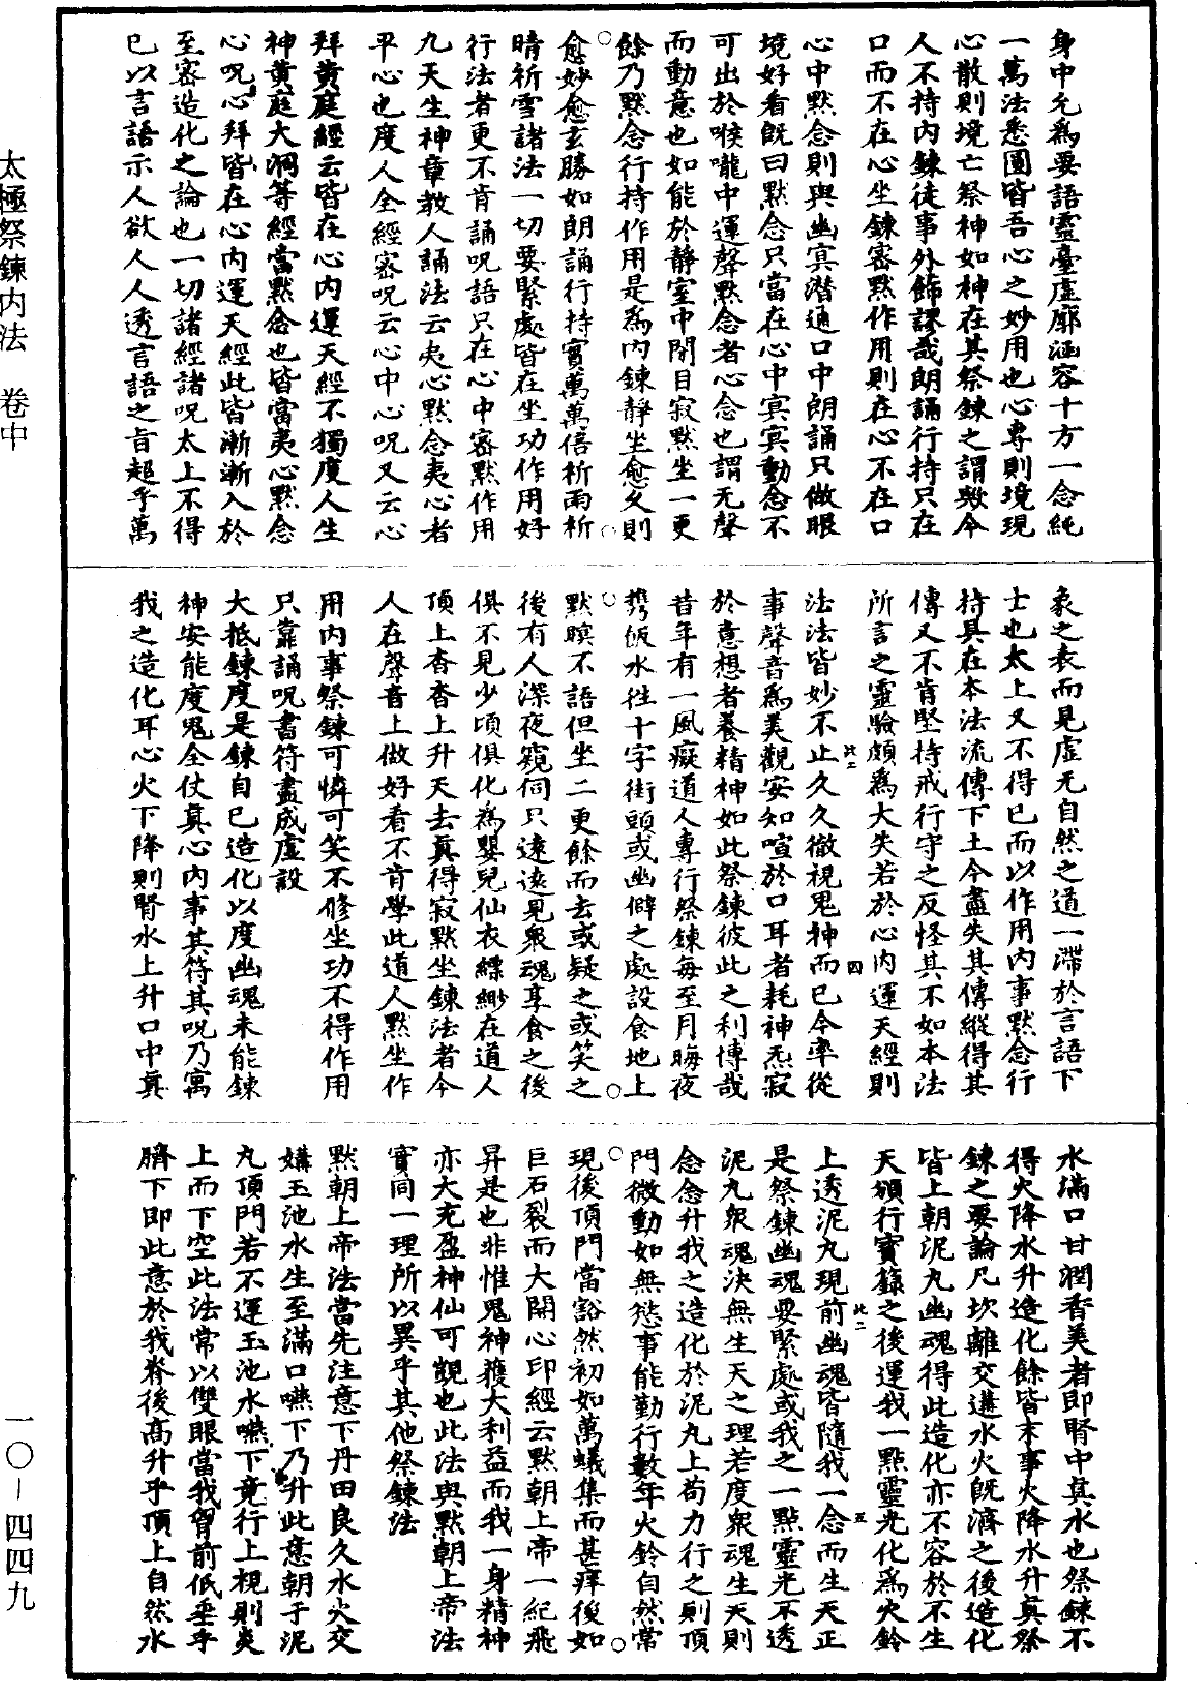 身中尤爲要語靈臺虛廓涵容十方一念純
一萬法悉圓皆吾心之妙用也心專則境現
心散則境亡祭神如神在其祭鍊之謂歟今
人不持内鍊徒事外飾謬哉朗誦行持只在
口而不在心坐鍊審默作用則在心不在口
心中默念則與幽冥潛通口中朗誦只做眼
境好看既曰默念只當在心中冥冥動念不
可出於喉嚨中運聲默念者心念也謂无聲
而動意也如能於靜室中閉目寂默坐一更
餘乃默念行持作用是爲内鍊靜坐愈久則
愈妙愈玄勝如朗誦行持實萬萬倍祈雨祈
晴祈雪諸法一切要緊處皆在坐功作用好
行法者更不肯誦呪語只在心中密默作用
九天生神章教人誦法云夷心默念夷心者
平心也度人全經密呪云心中心呪又云心
拜黄庭經云皆在心内運天經不獨度人生
神黄庭大洞等經當默念也皆當夷心默念
心呪心拜皆在心内運天經此皆漸漸入於
至密造化之論也一切諸經諸呪太上不得
已以言語示人欲人人透言語之旨超乎萬
象之表而見虛无自然之道一滯於言語下
士也太上又不得已而以作用内事默念行
持具在本法流傳下土今盡失其傳縱得其
傳又不肯堅持戒行守之反怪其不如本法
所言之靈驗頗爲大失若於心内運天經則
法法皆妙不止久久徹視鬼神而已今率從
事聲音爲美觀安知喧於口耳者耗神炁寂
於意想者養精神如此祭鍊彼此之利博哉
昔年有一風癡道人專行祭鍊每至月晦夜
攜飯水往十字街頭或幽僻之處設食地上
默瞑不語但坐二更餘而去或疑之或笑之
後有人深夜窺伺只遠遠見衆魂享食之後
俱不見少頃俱化爲嬰兒仙衣縹緲在道人
頂上杳杳上升天去真得寂默坐鍊法者今
人在聲音上做好看不肯學此道人默坐作
用内事祭鍊可憐可笑不修坐功不得作用
只靠誦呪書符盡成虛設
大抵鍊度是鍊自己造化以度幽魂未能鍊
神安能度鬼全仗真心内事其符其呪乃寓
我之造化耳心火下降則腎水上升口中真
水滿口甘潤香美者即腎中真水也祭鍊不
得火降水升造化餘皆末事火降水升真祭
鍊之要論凡坎離交遘水火既濟之後造化
皆上朝泥丸幽魂得此造化亦不容於不生
天頒行寶籙之後運我一點靈光化爲火鈴
上透泥丸現前幽魂皆隨我一念而生天正
是祭鍊幽魂要緊處或我之一點靈光不透
泥丸衆魂決無生天之理若度衆魂生天則
念念升我之造化於泥丸上苟力行之則頂
門微動如無慾事能勤行數年火鈴自然常
現後頂門當豁然初如萬蟻集而甚癢後如
巨石裂而大開心印經云默朝上帝一紀飛
昇是也非惟鬼神獲大利益而我一身精神
亦大充盈神仙可覬也此法與默朝上帝法
實同一理所以異乎其他祭鍊法
默朝上帝法當先注意下丹田良久水火交
媾玉池水生至滿口嚥下乃升此意朝于泥
丸頂門若不運玉池水嚥下竟行上視則炎
上而下空此法常以雙眼當我胷前低垂乎
臍下即此意於我脊後高升乎頂上自然水
太極祭鍊内法　卷中
一〇—四四九